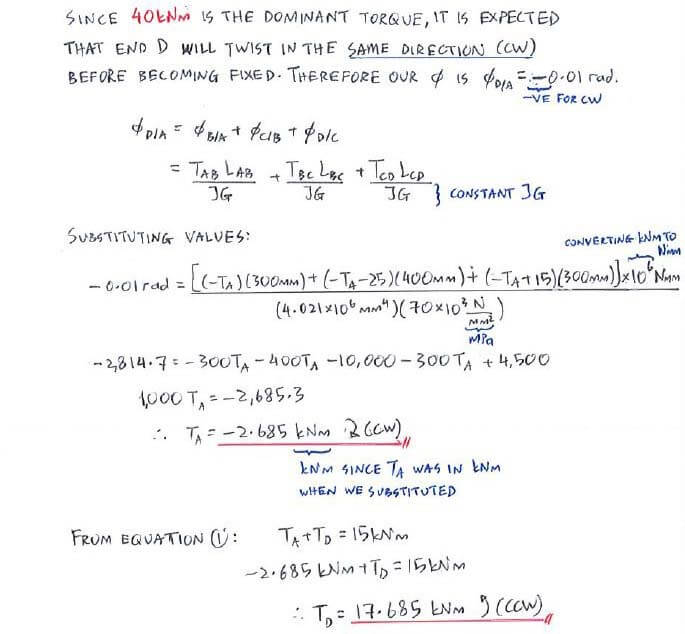 SINCE 40kNm IS THE DOMINANT TORQUE, IT IS EXPECTED
THAT END D WILL TWIST IN THE SAME DIRECTION (CW)
BEFORE BECOMING FIXED. THEREFORE OUR ϕ IS ϕD/A = -0.01 rad.
-VE FOR CW
ϕD/A = ϕB/A + ϕC/B + ϕD/C
= TAB LAB / JG + TBC LBC / JG + TCD LCD / JG } CONSTANT JG
SUBSTITUTING VALUES:
CONVERTING kNM TO Nmm
-0.01 rad = [(-TA)(300MM) + (-TA-25)(400MM) + (-TA+15)(300MM)] x10⁶ NMM / (4.021x10⁶ MM⁴)(70x10³ N/MM²)
MPa
-2,814.7 = -300TA - 400TA - 10,000 - 300TA + 4,500
1,000 TA = -2,685.3
∴ TA = -2.685 kNM ↻ (CW)
kNM SINCE TA WAS IN kNM
WHEN WE SUBSTITUTED
FROM EQUATION ①: TA + TD = 15kNM
-2.685 kNM + TD = 15kNM
∴ TD = 17.685 kNM ↺ (CCW)